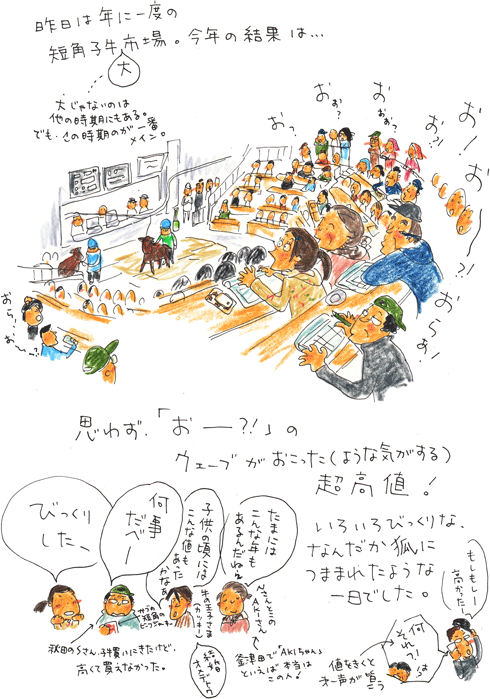 昨日は年に一度の
短角子牛市場。今年の結果は…
大
大じゃないのは
他の時期にもある。
でも、この時期のが一番
メイン。
おっ
おぉ?
お
おぉ?
お?!
お!
お〜〜?!
おらぁ!
おら、
お〜…?!
思わず、「おー?!」の
ウェーブがおこった(ような気がする)
超高値!
いろいろびっくりな、
なんだか狐に
つままれたような
一日でした。
びっくり
した、
何事
だべー
子供の頃には
こんな値も
あった
かなぁ
たまには
こんな年も
あるんだねぇ
もしもしー
高かったー
何
それ?!
はら
秋田のSさん、子牛買いにきたけど、
高くて買えなかった。
牛の王子さま
(カッキー)
結婚
オメデトウ
釜津田で「AKiちゃん」
といえば本当は
この人!
値をきくと
第一声が皆こう